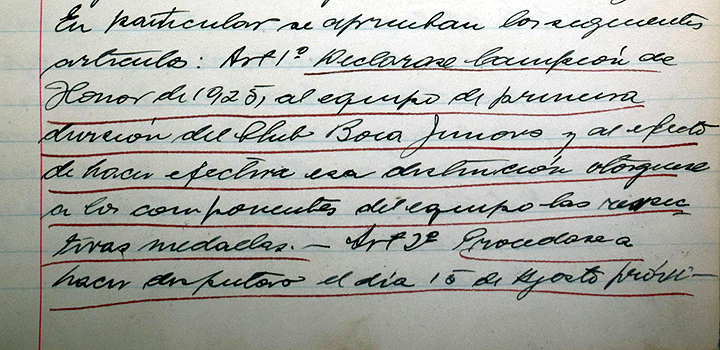 En particular se aprueban los siguientes
artículos: Art 1º Declarase Campeón de
Honor de 1925, al equipo de primera
división del Club Boca Juniors y al efecto
de hacer efectiva esa distinción otorguese
a los componentes del equipo las respec-
tivas medallas. — Art 2º Procedase a
hacer disputar el día 15 de Agosto próxi-